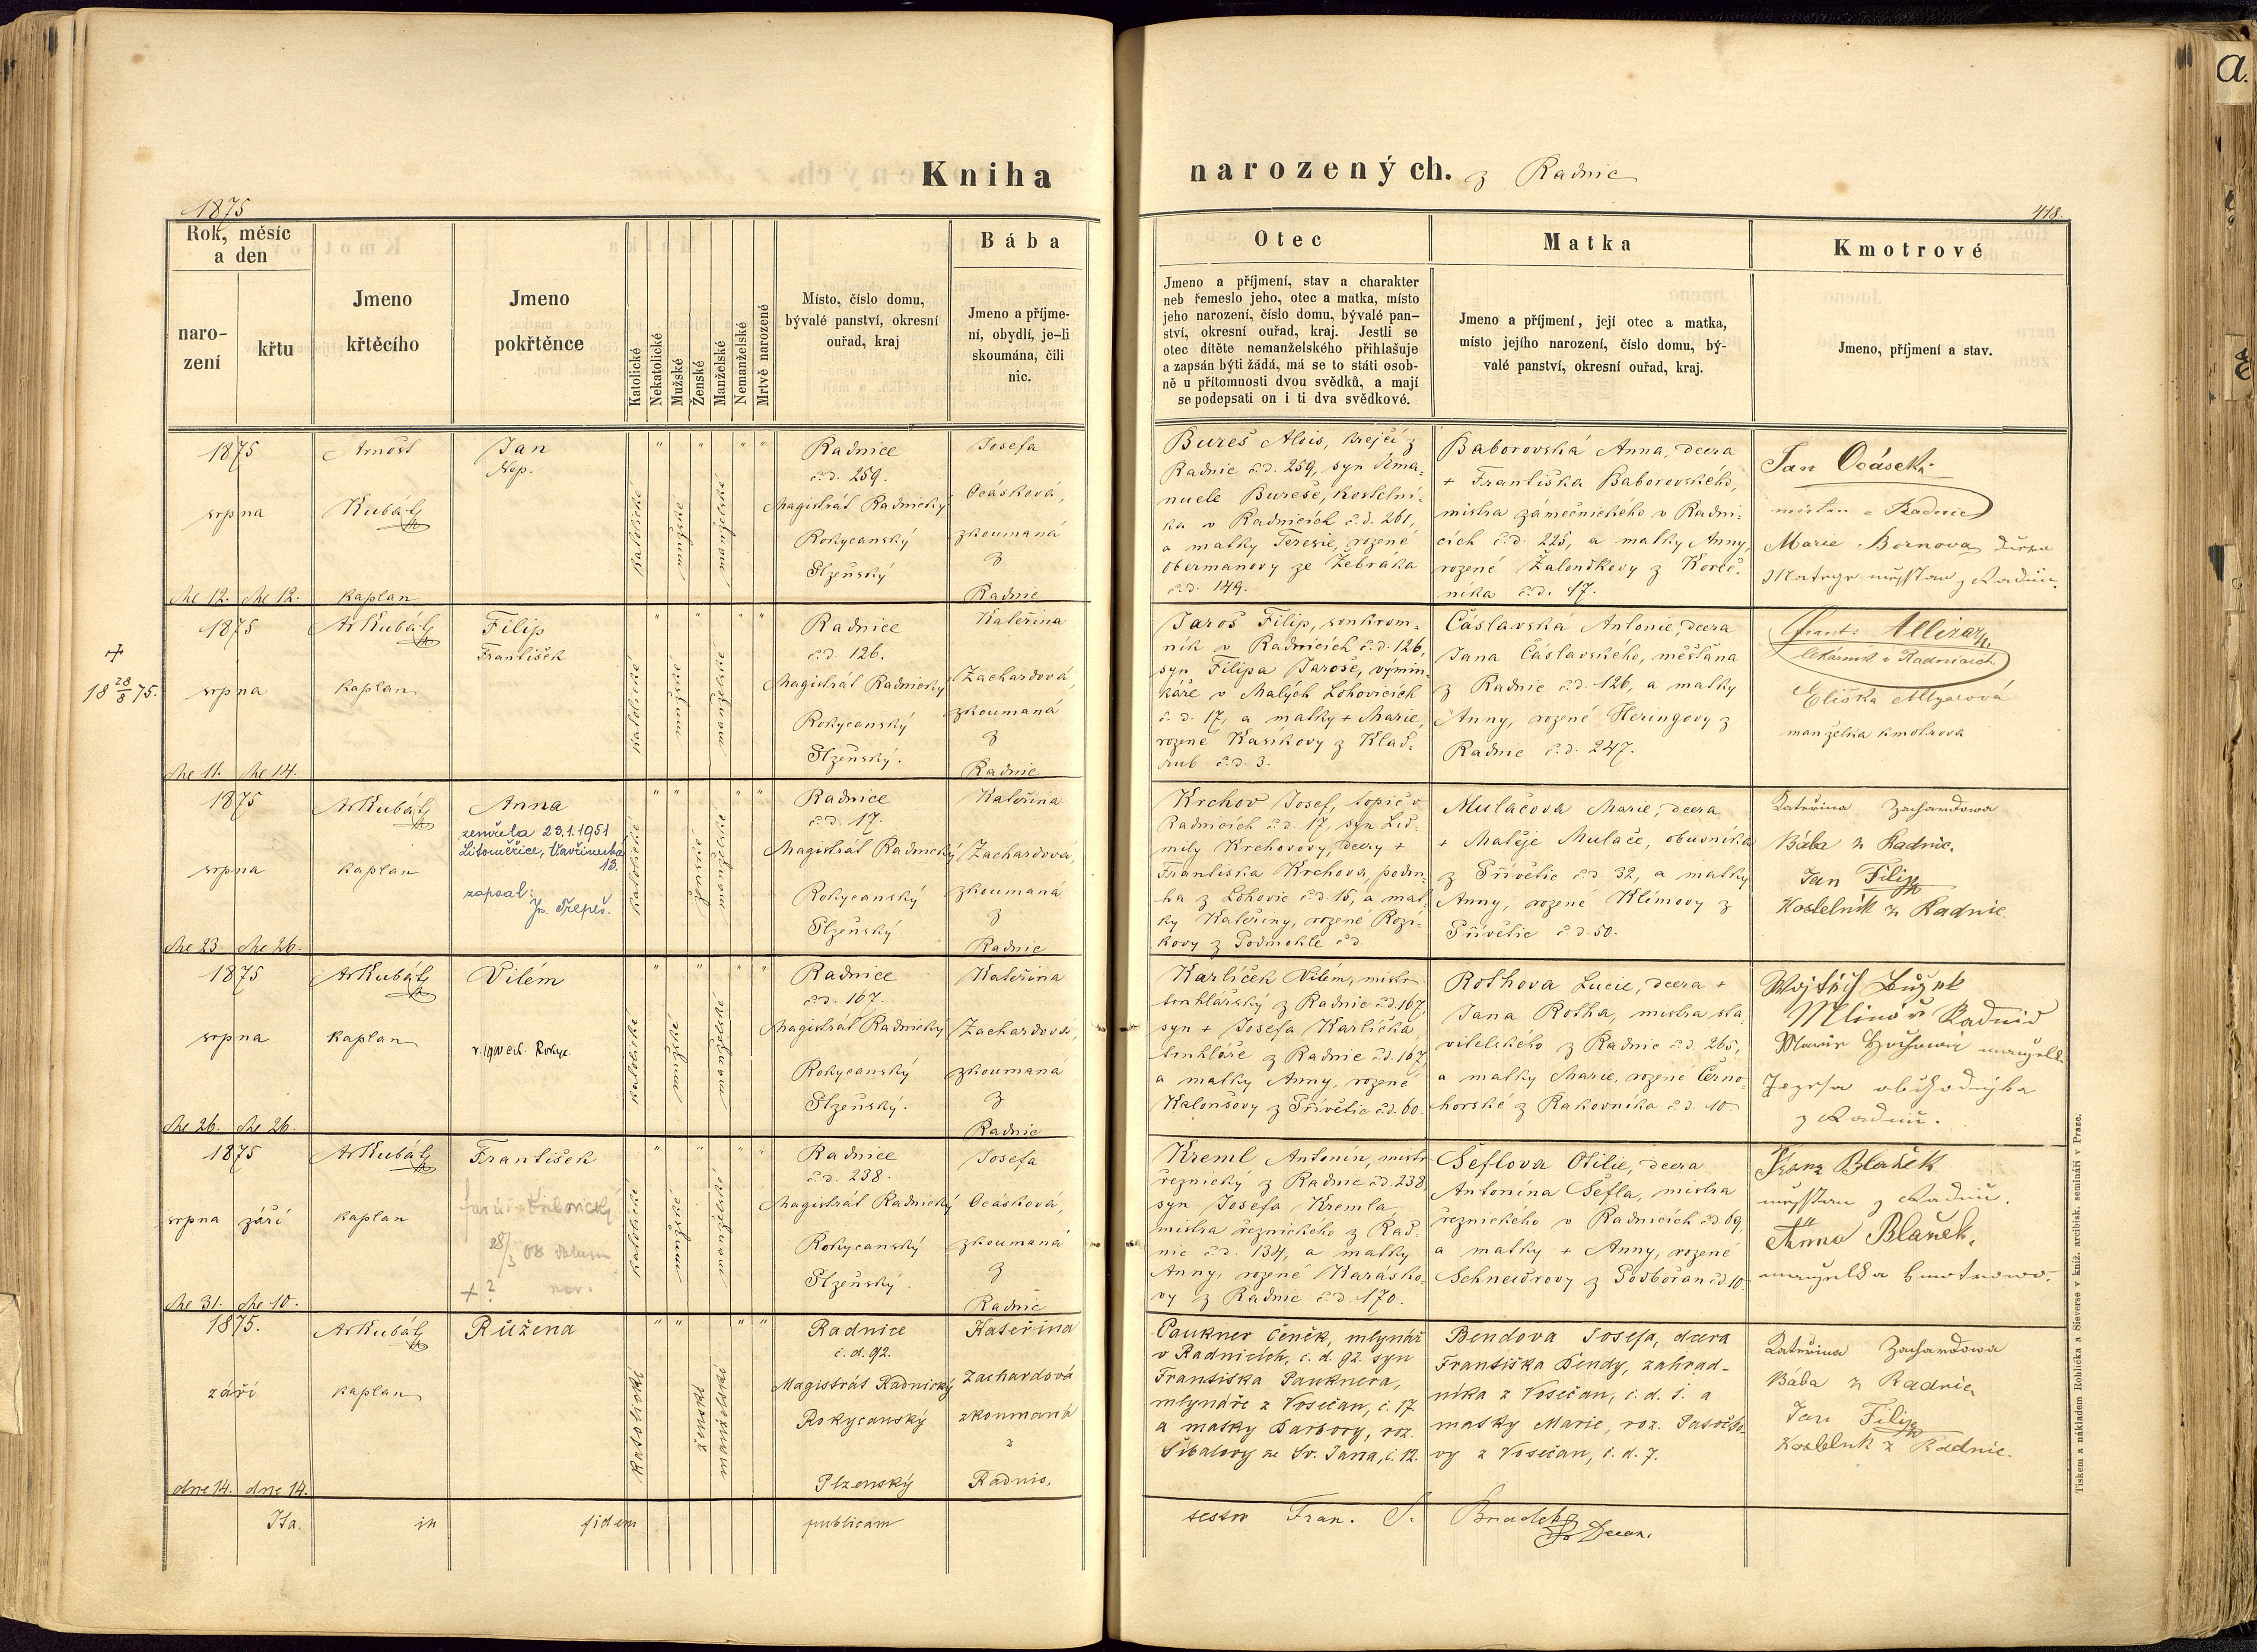 Kniha narozených. z Radnic
1875
418.
Rok, měsíc
a den
naro-
zení
křtu
Jmeno
křtěcího
Jmeno
pokřtěnce
Katolické
Nekatolické
Mužské
Ženské
Manželské
Nemanželské
Mrtvě narozené
Místo, číslo domu,
bývalé panství, okresní
ouřad, kraj
Bába
Jmeno a příjme-
ní, obydlí, je-li
skoumána, čili
nic.
Otec
Jmeno a příjmení, stav a charakter
neb řemeslo jeho, otec a matka, místo
jeho narození, číslo domu, bývalé pan-
ství, okresní ouřad, kraj. Jestli se
otec dítěte nemanželského přihlašuje
a zapsán býti žádá, má se to státi osob-
ně u přítomnosti dvou svědků, a mají
se podepsati on i ti dva svědkové.
Matka
Jmeno a příjmení, její otec a matka,
místo jejího narození, číslo domu, bý-
valé panství, okresní ouřad, kraj.
Kmotrové
Jmeno, příjmení a stav.
1875
srpna
dne 12. dne 12.
Arnošt
Kubát
kaplan
Jan
Nep.
katolické
mužské
manželské
Radnice
č.d. 259.
Magistrát Radnický
Rokycanský
Plzeňský
Josefa
Ocásková,
zkoumaná
z
Radnic
Bureš Alois, krejčí z
Radnic č.d. 259, syn Ema-
nuele Bureše, kostelní-
ka v Radnicích č.d. 261,
a matky Terezie, rozené
Obermanovy ze Žebráka
č.d. 149.
Baborovská Anna, dcera
+ Františka Baborovského,
mistra zámečnického v Radni-
cích č.d. 225, a matky Anny,
rozené Žaloudkovy z Koreč-
níka č.d. 17.
Jan Ocásek
měšťan z Radnic
Marie Bornova
1875
srpna
dne 11. dne 14.
+
18 28/8 75.
Ar Kubát
kaplan
Filip
František
katolické
mužské
manželské
Radnice
č.d. 126.
Magistrát Radnický
Rokycanský
Plzeňský.
Kateřina
Zachardová,
zkoumaná
z
Radnic
Jaroš Filip, soukrom-
ník v Radnicích č.d. 126,
syn Filipa Jaroše, výmin-
káře v Malých Lohovicích
č.d. 17, a matky + Marie,
rozené Kasíkovy z Klad-
rub č.d. 3.
Čáslavská Antonie, dcera
Jana Čáslavského, měšťana
z Radnic č.d. 126, a matky
Anny, rozené Heringovy z
Radnic č.d. 247.
Frant:
lékárník v Radnicích
Eliška
manželka kmotrova
1875
srpna
dne 23. dne 26.
Ar Kubát
kaplan
Anna
zemřela 23.1.1951
Litoměřice, Vavřinecká
13.
zapsal:
katolické
ženské
manželské
Radnice
č.d. 17.
Magistrát Radnický
Rokycanský
Plzeňský
Kateřina
Zachardová,
zkoumaná
z
Radnic
Krchov Josef, topič v
Radnicích č.d. 17, syn Lid-
mily Krchovovy, dcery +
Františka Krchova, podru-
ha z Lohovic č.d. 15, a mat-
ky Kateřiny, rozené Rozí-
kovy z Podmokle č.d.
Mulačova Marie, dcera
+ Matěje Mulače, obuvníka
z Přívětic č.d. 32, a matky
Anny, rozené Klímovy z
Přívětic č.d. 50.
Kateřina Zachardowa
Bába z Radnic.
Jan Filip
Kostelník z Radnic.
1875
srpna
dne 26. dne 26.
Ar Kubát
kaplan
Vilém
katolické
mužské
manželské
Radnice
č.d. 167.
Magistrát Radnický
Rokycanský
Plzeňský.
Kateřina
Zachardová,
zkoumaná
z
Radnic
Karlíček Vilém, mistr
truhlářský z Radnic č.d. 167,
syn + Josefa Karlíčka,
truhláře z Radnic č.d. 167
a matky Anny, rozené
Kalousovy z Přívětic č.d. 60.
Rothova Lucie, dcera +
Jana Rotha, mistra sta-
vitelského z Radnic č.d. 265,
a matky Marie, rozené Černo-
horské z Rakovníka č.d. 10.
1875
srpna září
dne 31. dne 10.
Ar Kubát
kaplan
František
+ ?
katolické
mužské
manželské
Radnice
č.d. 238.
Magistrát Radnický
Rokycanský
Plzeňský
Josefa
Ocásková,
zkoumaná
z
Radnic
Kreml Antonín, mistr
řeznický z Radnic č.d. 238,
syn Josefa Kremla,
mistra řeznického z Rad-
nic č.d. 134, a matky
Anny, rozené Karásko-
vy z Radnic č.d. 170.
Šeflova Otilie, dcera
Antonína Šefla, mistra
řeznického v Radnicích č.d. 69,
a matky + Anny, rozené
Schneidrovy z Podbořan č.d. 10.
Franz Blažek
Anna Blažek,
1875.
září
dne 14. dne 14.
Ar Kubát
kaplan
Růžena
katolické
ženské
manželské
Radnice
č.d. 92.
Magistrát Radnický
Rokycanský
Plzenský
Kateřina
Zachardová
zkoumaná
z
Radnic.
Paukner Čeněk, mlynář
v Radnicích, č.d. 92. syn
Františka Pauknera,
mlynáře z Vosečan, č. 17.
a matky Barbory, roz.
Šibalovy ze Sv. Jana, č. 12.
Bendova Josefa, dcera
Františka Bendy, zahrad-
níka z Vosečan, č.d. 1. a
matky Marie, roz.
vy z Vosečan, č.d. 7.
Kateřina Zachardowa
Bába z Radnic
Jan Filip
Kostelník z Radnic.
Ita in fidem publicam testor Fran. Decan.
Tiskem a nákladem Rohlíčka a Sieverse v kníž. arcibisk. semináři v Praze.
a.